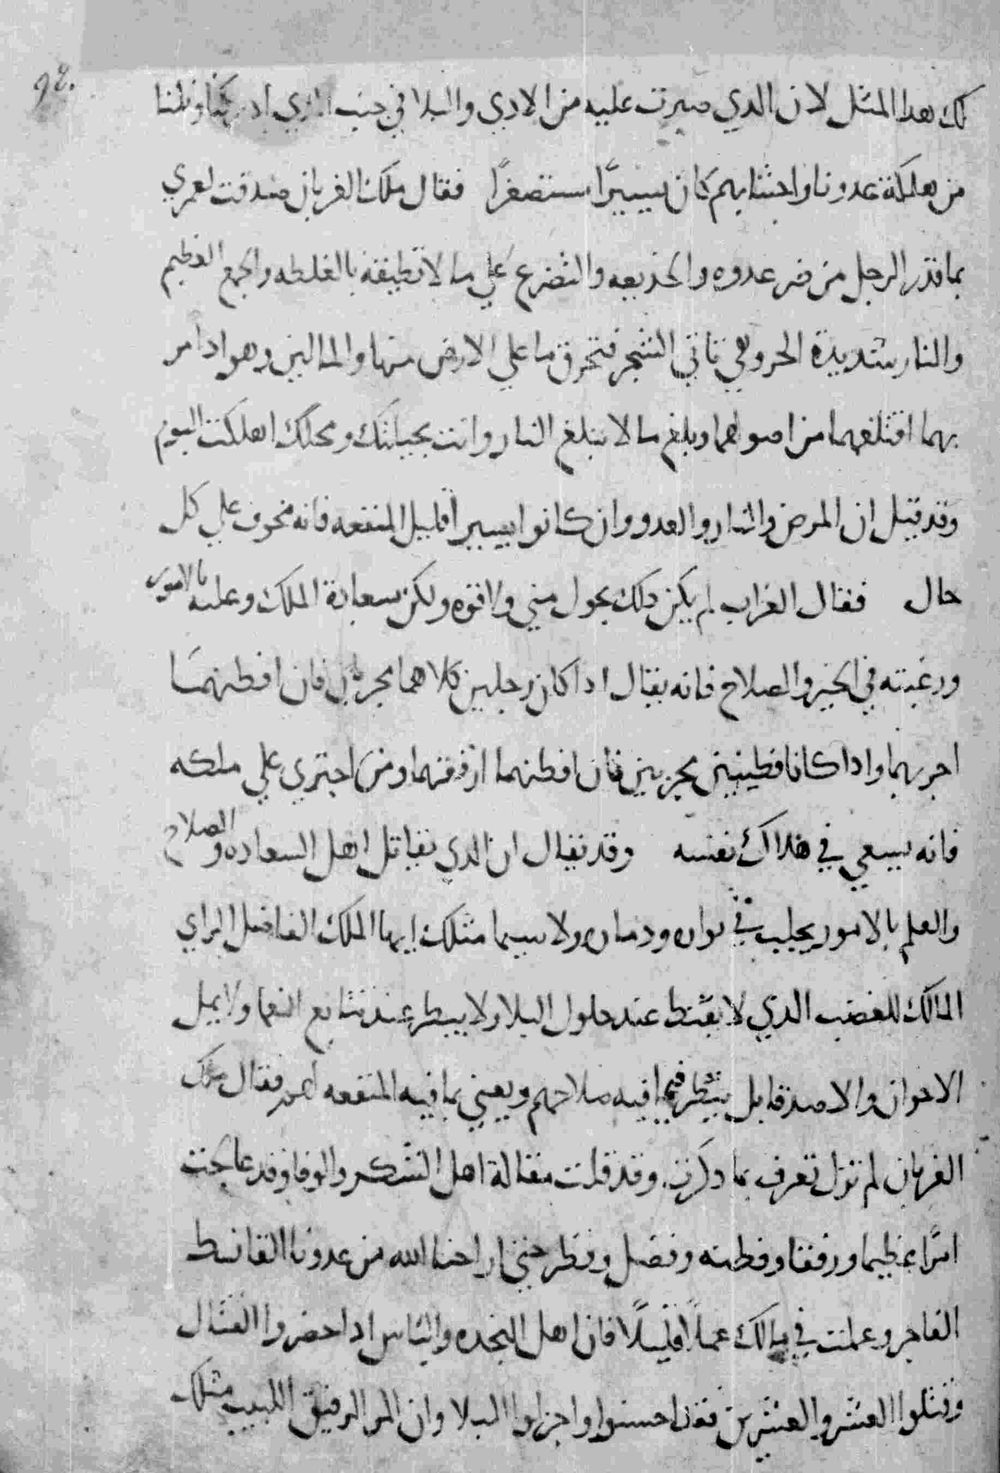 لك هدا المثل لان الدي صبرت عليه من الادي والبلا في جنب الدي ادركنا ونلنا
من هلكة عدونا واجتثابهم كان يسيرًا مستصغرًا فقال ملك الغربان صدقت لعمري
بما قدر الرجل من ضر عدوه والخديعه والتضرع علي ما لا تطيقه بالغلظه والجمع العظيم
والنار شديدة الحر وهي تاتي الشجر فتحرق ما علي الارض منها والما لين وهو ادا مر
بهما اقتلعهما من اصولهما وبلغ ما لا تبلغ النار وانت بحيلتك ومحلك اهلكت البوم
وقد قيل ان المرض والنار والعدو وان كانوا يسيرًا قليل المنفعه فانه مخوف علي كل
حال فقال الغراب لم يكن دلك بحول مني ولا قوه ولكن سعادة الملك وعلمه بالامور
ورغبته في الخير والصلاح فانه يقال ادا كان رجلين كلاهما مجربين فان افطنهما
اجربهما وادا كانا فطينين مجربين فان افطنهما ارفقهما ومن اجتري علي ملكه
فانه يسعي في هلاك نفسه وقد يقال ان الدي يقاتل اهل السعاده والصلاح
والعلم بالامور يجلب في ولا سيما مثلك ايها الملك الفاضل الراي
المالك للغضب الدي لا يقنط عند حلول البلا ولا يبطر عند تتابع النعما ولا يمل
الاخوان والاصدقا بل ينظر فيما فيه صلاحهم ويعني بما فيه المنفعه لهم فقال ملك
الغربان لم تزل تعرف بما دكرت وقد قلت مقالة اهل الشكر والوفا وقد عالجت
امرًا عظيما ورفقنا وفطنه وفضل ونظر حتي اراحنا الله من عدونا القانط
الفاجر وعملت في دلك عملًا قليلًا فان اهل النجده والباس ادا حضروا القتال
وقتلوا العشر والعشرين فقد احسنوا واجزلوا البلا وان المر الرفيق اللبيب مثلك